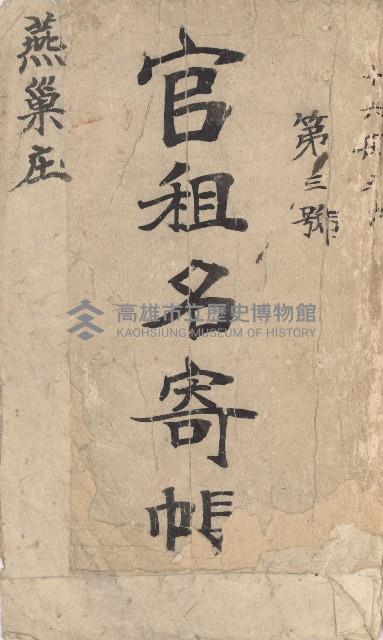 第三號
官租名寄帳
燕巢庄
高雄市立歷史博物館
KAOHSIUNG MUSEUM OF HISTORY